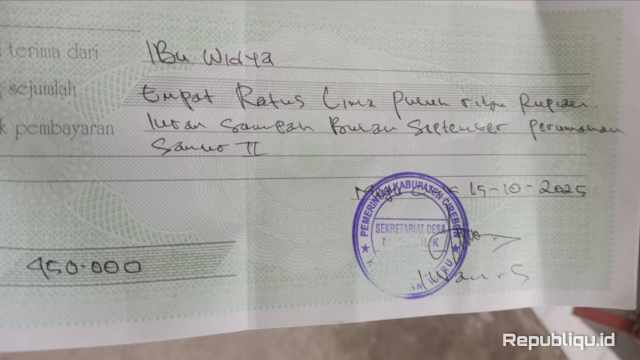 terima dari IBu Widya
sejumlah Empat Ratus Lima Puluh ribu Rupiah
pembayaran Iuran Sampah Bulan September perumahan
Sanur II
15-10-2025
PEMERINTAH KABUPATEN CIREBON
SEKRETARIAT DESA
450.000
Iwan.S
Republiqu.id